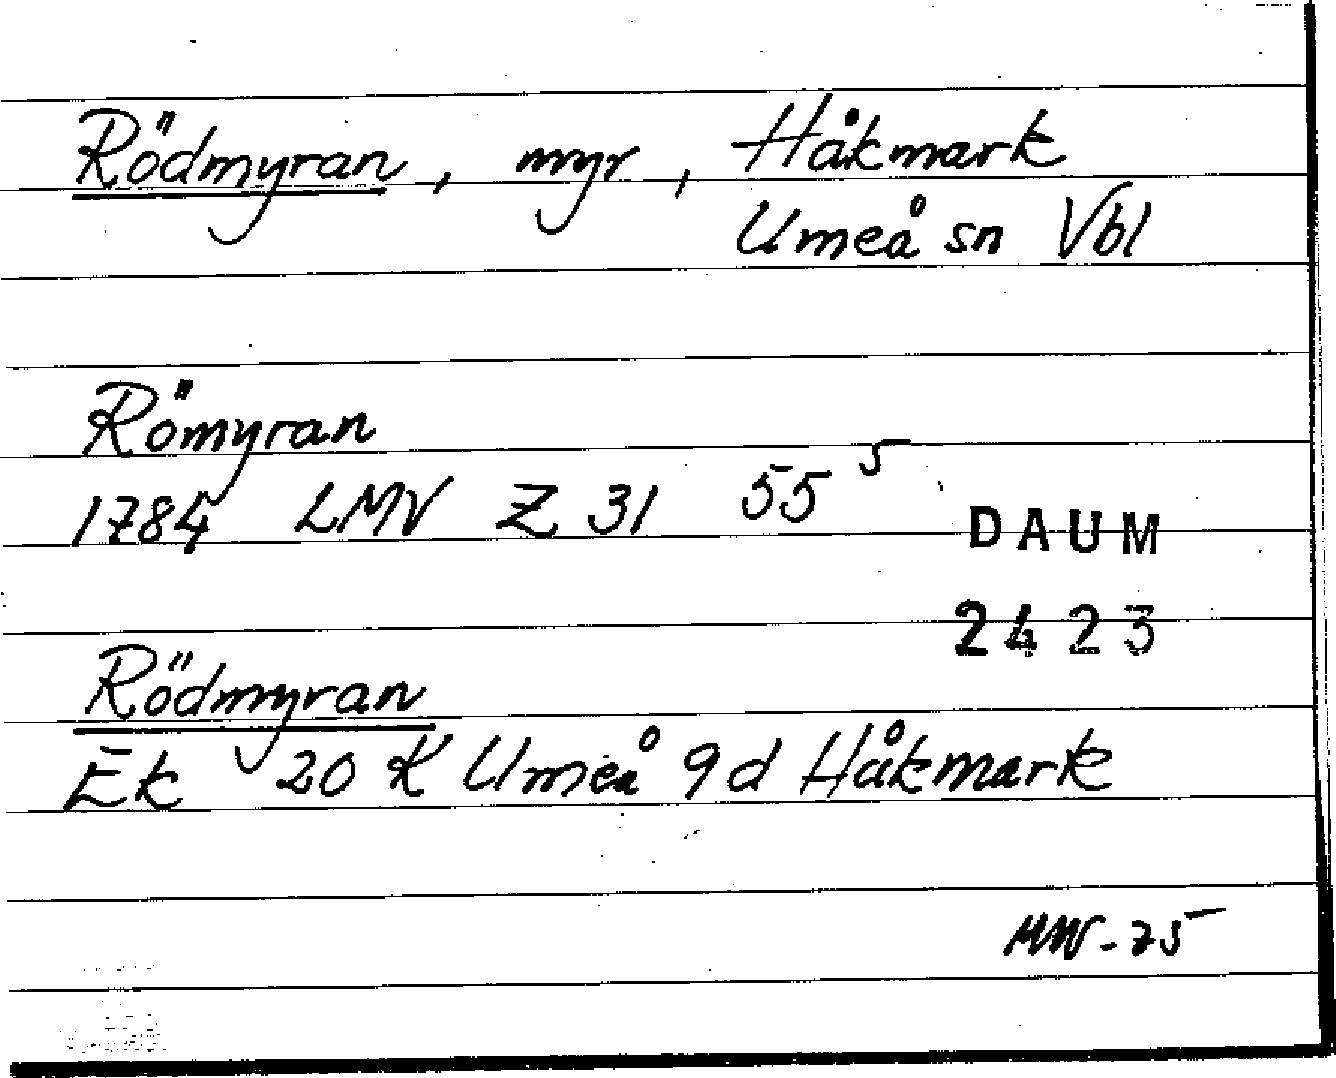 Rödmyran, myr, Håkmark
Umeå sn Vbl
Römyran
1784 LMV Z 31 55⁵
DAUM
2423
Rödmyran
Ek 20 K Umeå 9d Håkmark